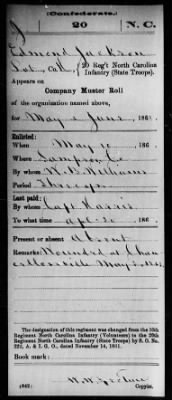 (Confederate.)
J 20 N. C.
Edmond Jackson
Pvt., Co. , 20 Reg't North Carolina
Infantry (State Troops).
Appears on
Company Muster Roll
of the organization named above,
for May & June, 186 .
Enlisted:
When May 10, 186 .
Where Sampson Co
By whom Williams
Period
Last paid:
By whom Capt. Harris
To what time Apl. 30, 186 .
Present or absent Absent
Remarks: Wounded at Chan
cellorsville May
The designation of this regiment was changed from the 10th
Regiment North Carolina Infantry (Volunteers) to the 20th
Regiment North Carolina Infantry (State Troops) by S. O. No.
222, A. & I. G. O., dated November 14, 1861.
Book mark:
(642) Copyist.